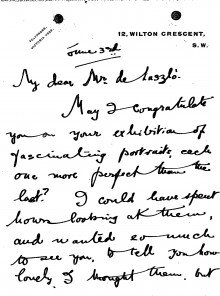 TELEPHONE,
VICTORIA
12, WILTON CRESCENT,
S.W.
June 3rd
My dear Mr. de Laszló.
May I congratulate
you on your exhibition of
fascinating portraits, each
one more perfect than the
last? I could have spent
hours looking at them,
and wanted so much
to see you, to tell you how
lovely I thought them, but